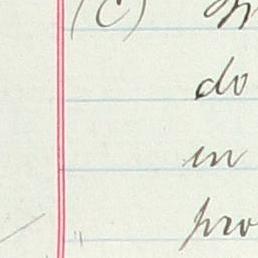 (C)
do
in
pro